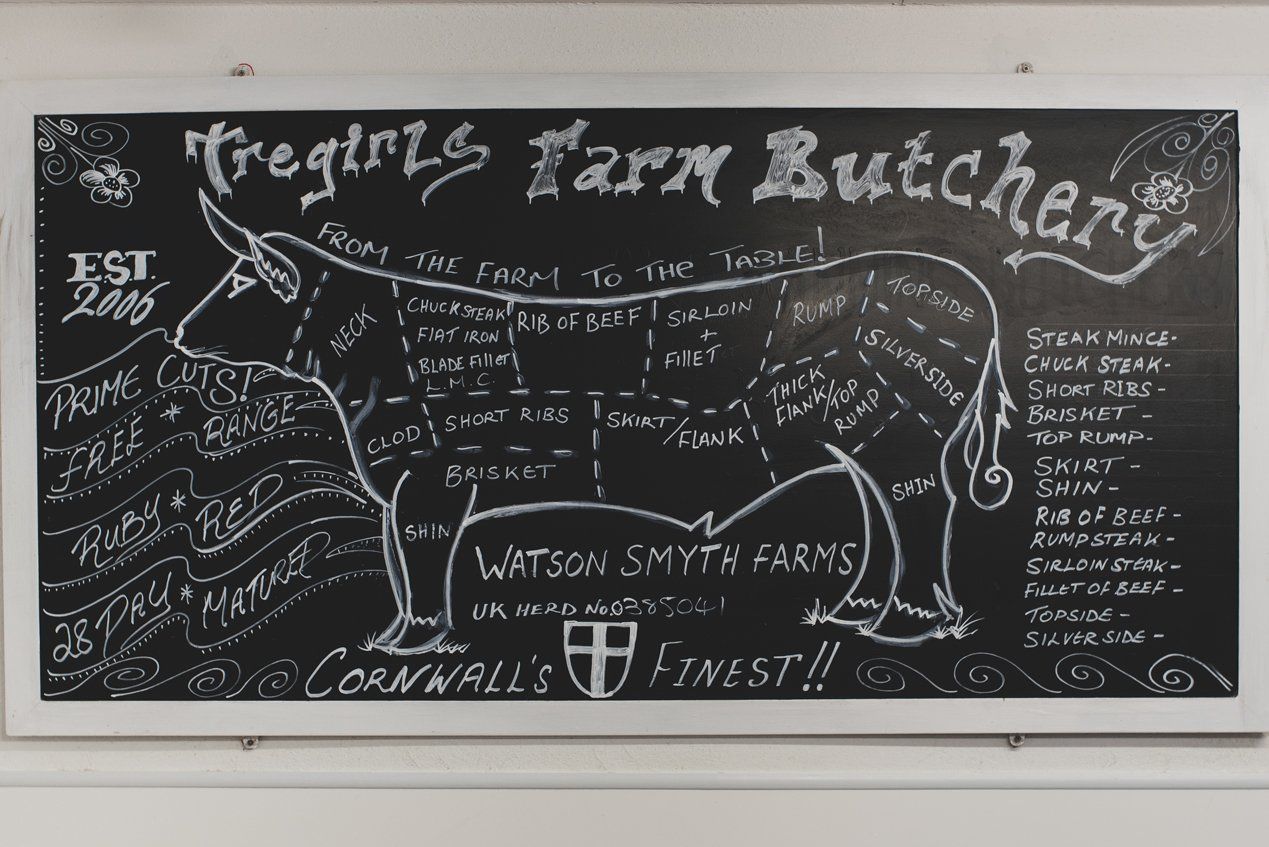 Tregirls Farm Butchery
FROM THE FARM TO THE TABLE!
EST.
2006
PRIME CUTS!
FREE * RANGE
RUBY * RED
28 DAY * MATURED
NECK
CHUCK STEAK
FLAT IRON
BLADE FILLET
L.M.C.
RIB OF BEEF
SIRLOIN
+
FILLET
RUMP
TOPSIDE
SILVERSIDE
THICK
FLANK/TOP
RUMP
CLOD
SHORT RIBS
BRISKET
SKIRT/FLANK
SHIN
SHIN
WATSON SMYTH FARMS
UK HERD No.0385041
CORNWALL'S FINEST!!
STEAK MINCE-
CHUCK STEAK-
SHORT RIBS-
BRISKET -
TOP RUMP-
SKIRT -
SHIN -
RIB OF BEEF-
RUMP STEAK-
SIRLOIN STEAK-
FILLET OF BEEF-
TOPSIDE -
SILVER SIDE -